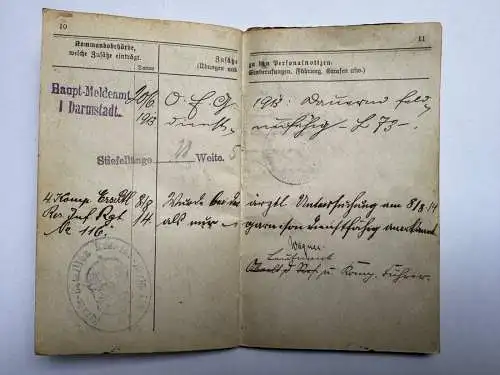 10
11
Kommandobehörde,
welche Zusätze einträgt.
Datum
Zusätze
(Übungen und
zu den Personalnotizen.
Einberufungen, Führung, Strafen usw.)
Haupt-Meldeamt
I Darmstadt.
20/6
1913
O. E. G.
1913: Dauernd feld-
dienst-
unfähig – L 73 –.
Stiefellänge
Weite. 5
4 Komp. Ers. Btl.
Res. Inf. Rgt
No 116.
8/8
14.
Wurde bei der
ärztl. Untersuchung am 8/8.14
als nur
garnisondienstfähig anerkannt
Wagner
Leutnant
u Komp. Führer.